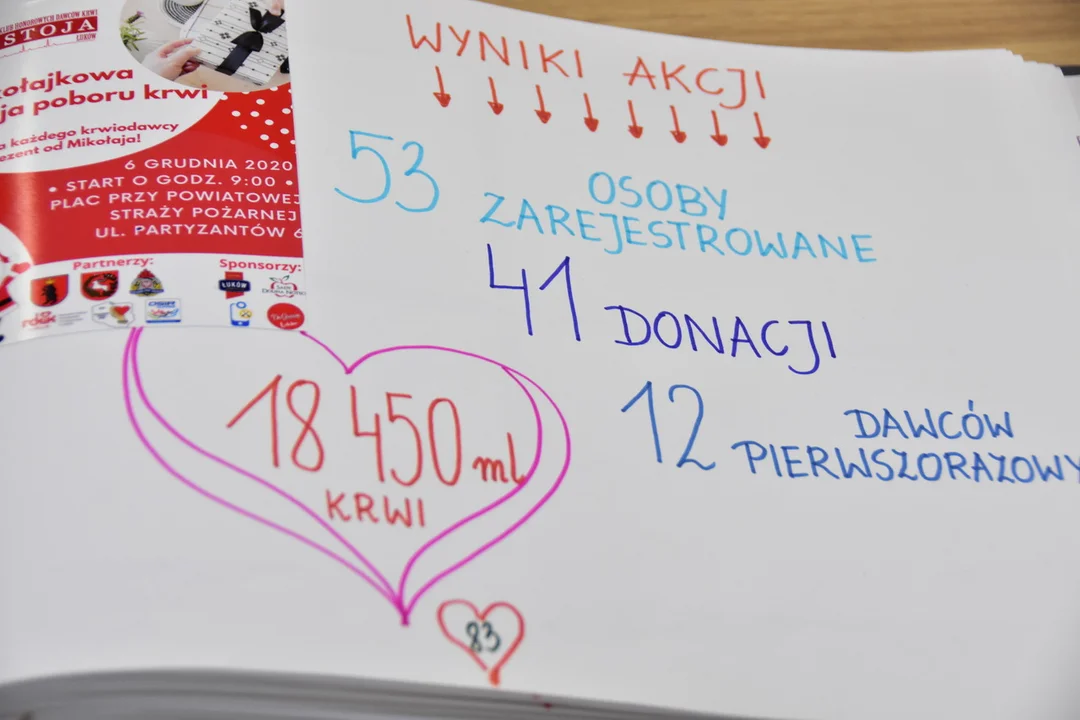 KLUB HONOROWYCH DAWCÓW KRWI
STOJA
ŁUKÓW
ołajkowa
ja poboru krwi
każdego krwiodawcy
ezent od Mikołaja!
6 GRUDNIA 2020
• START O GODZ. 9:00 •
PLAC PRZY POWIATOWEJ
STRAŻY POŻARNEJ
UL. PARTYZANTÓW 6
Partnerzy:
Sponsorzy:
ŁUKÓW
WYNIKI AKCJI
53 OSOBY
ZAREJESTROWANE
41 DONACJI
12 DAWCÓW
PIERWSZORAZOWY
18 450 ml
KRWI
83